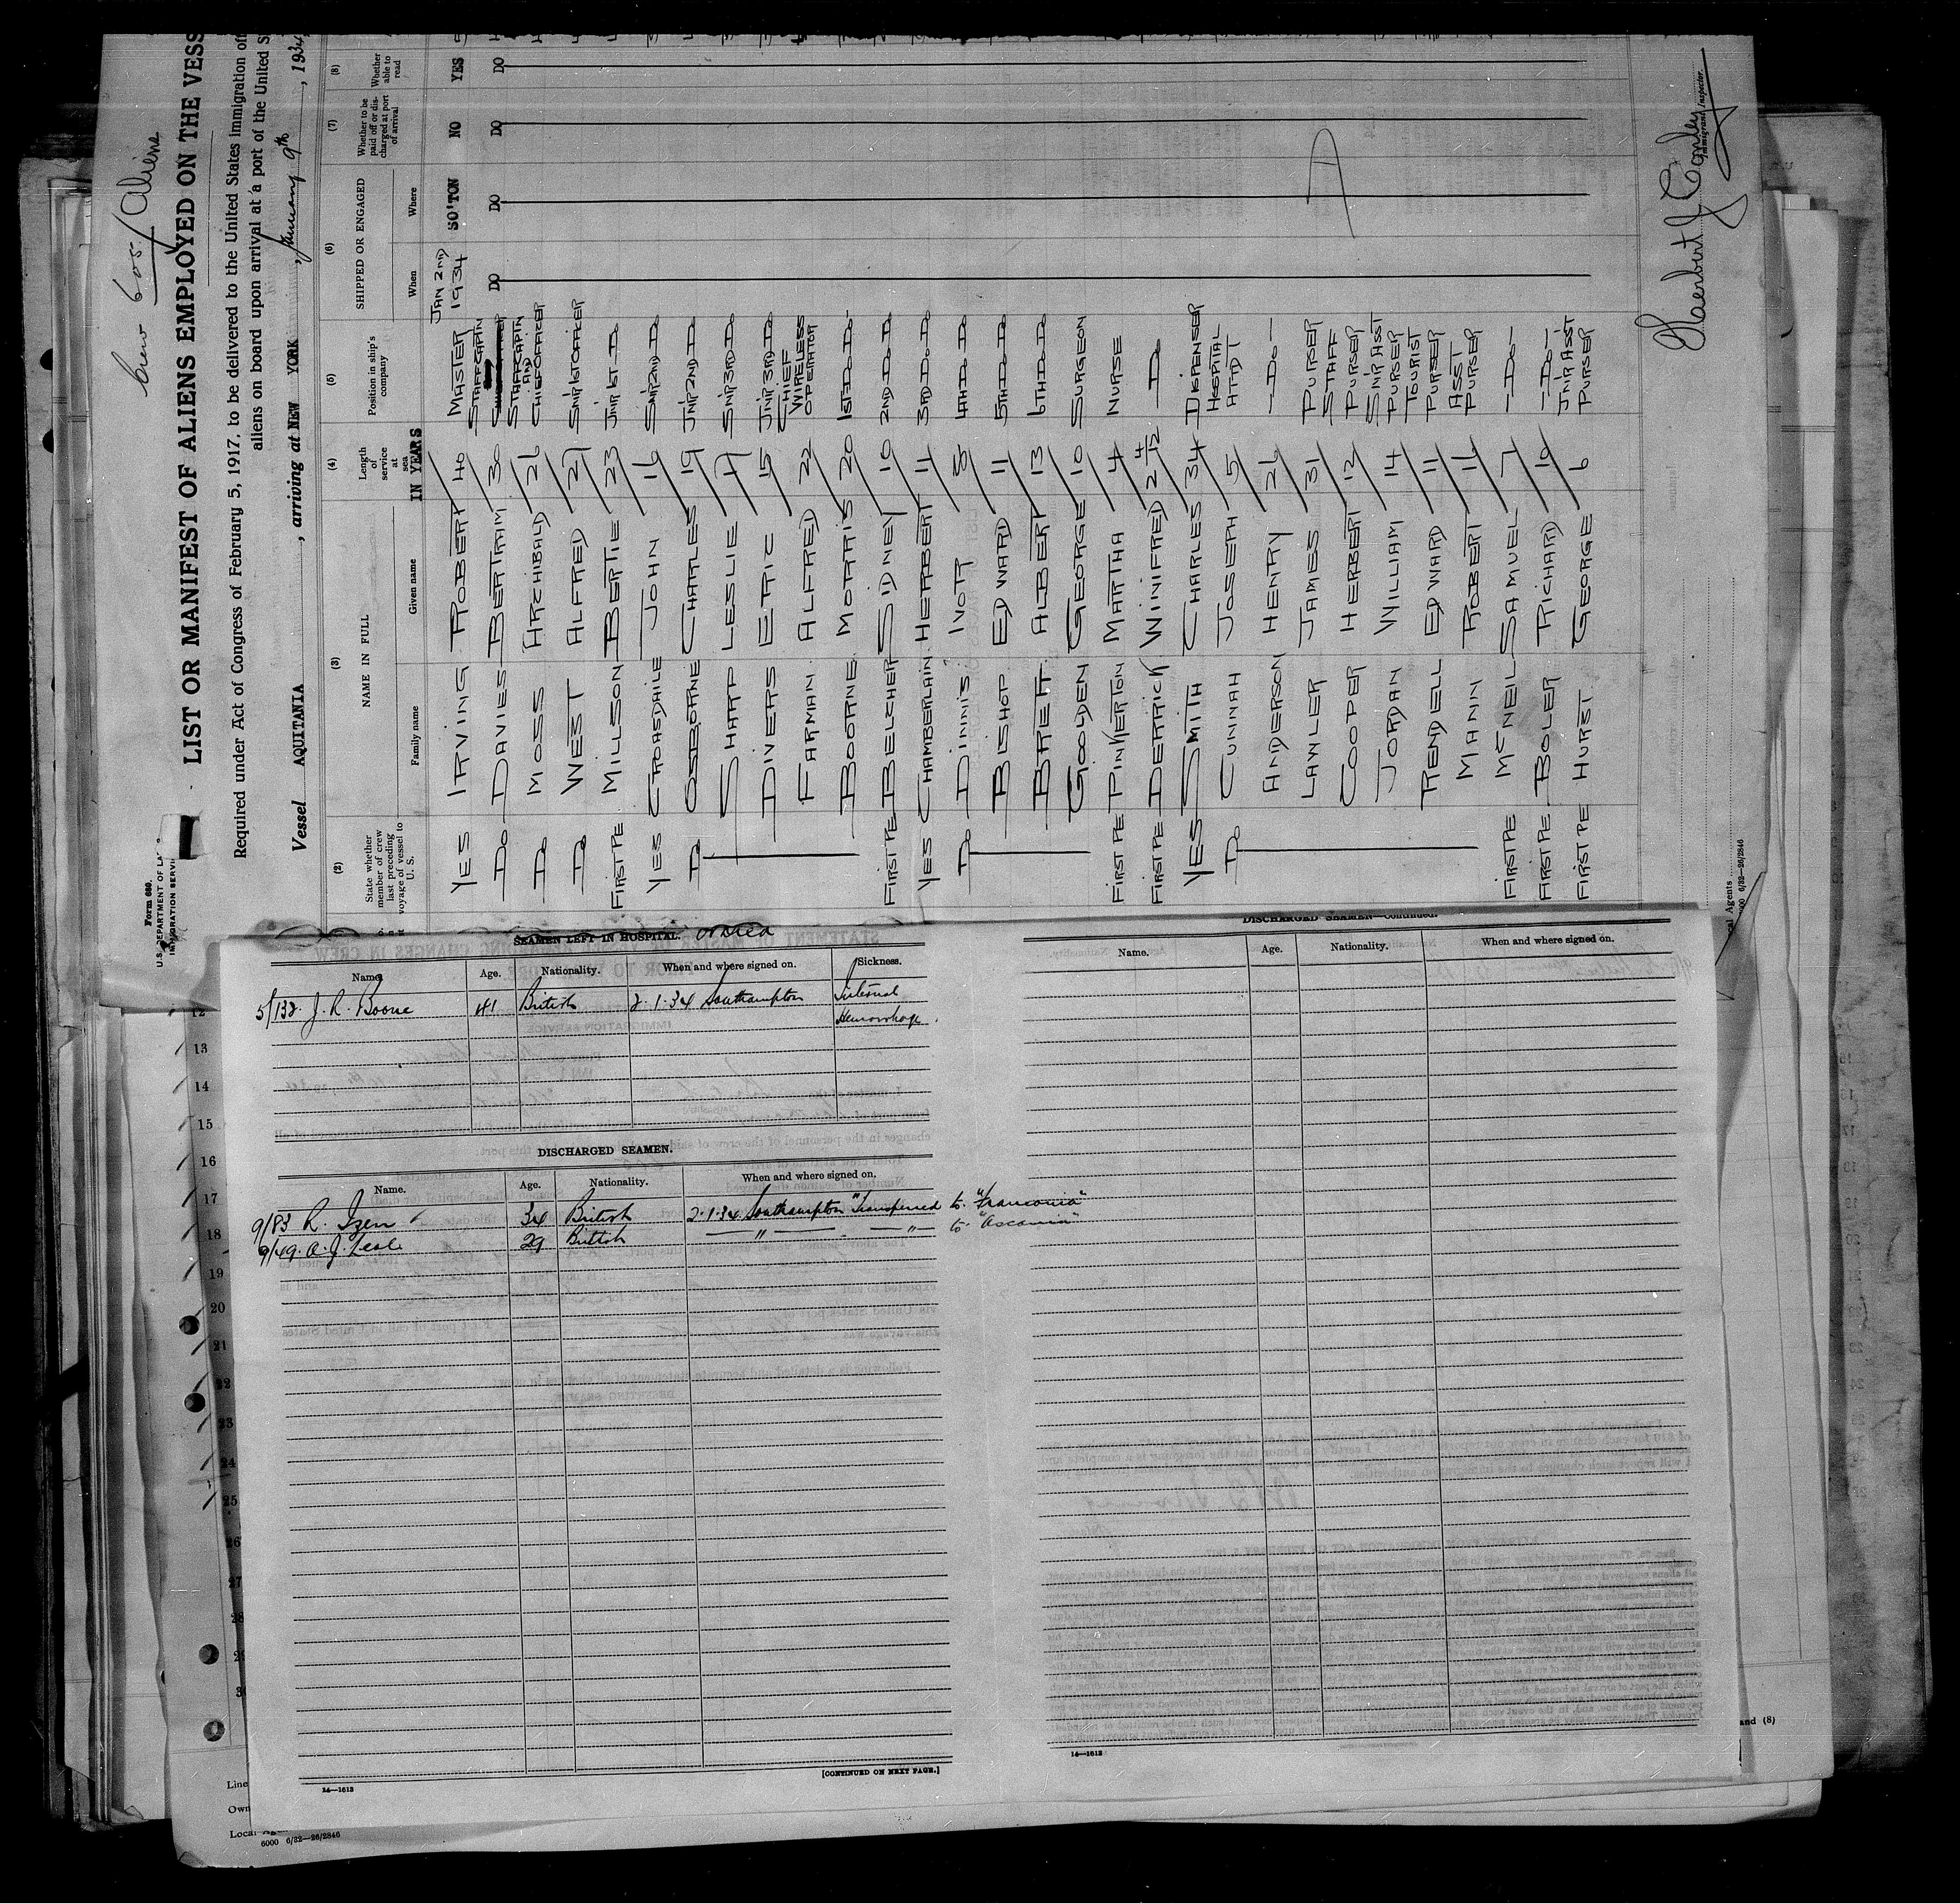 Crew 605/Aliens
Form 680.
LIST OR MANIFEST OF ALIENS EMPLOYED ON THE VESS
Required under Act of Congress of February 5, 1917, to be delivered to the United States immigration off
aliens on board upon arrival at a port of the United S
Vessel AQUITANIA , arriving at NEW YORK , January 9th , 1934
(2) (3) (4) (5) (6) (7) (8)
State whether member of crew last preceding voyage of vessel to U. S.
NAME IN FULL
Family name Given name
Length of service at sea
IN YEARS
Position in ship's company
SHIPPED OR ENGAGED
When Where
Whether to be paid off or discharged at port of arrival
Whether able to read
YES IRVING ROBERT 40 MASTER JAN 2ND 1934 SO'TON NO YES
DO DAVIES BERTRAM 30 STAFF CAPTN DO DO DO DO
DO MOSS ARCHIBALD 26 STAFF CAPTN AND CHIEF OFFICER
DO WEST ALFRED 27 SNR 1ST OFFICER
FIRST PE MILLSON BERTIE 23 JNR 1ST DO
YES CROASDAILE JOHN 16 SNR 2ND DO
DO OSBORNE CHARLES 19 JNR 2ND DO
SHARP LESLIE 17 SNR 3RD DO
DIVERS ERIC 15 JNR 3RD DO
FARMAN ALFRED 22 CHIEF WIRELESS OPERATOR
BOORNE MORRIS 20 1ST DO DO
FIRST PE BELCHER SIDNEY 10 2ND DO DO
YES CHAMBERLAIN HERBERT 11 3RD DO DO
DO DINNIS IVOR 8 4TH DO DO
BISHOP EDWARD 11 5TH DO DO
BRETT ALBERT 13 6TH DO DO
GOOLDEN GEORGE 10 SURGEON
FIRST PE PINKERTON MARTHA 4 NURSE
FIRST PE DERRICK WINIFRED 2 4/12 DO
YES SMITH CHARLES 34 DISPENSER
DO CUNNAH JOSEPH 5 HOSPITAL ATTDT
ANDERSON HENRY 26 -DO-
LAWLER JAMES 31 PURSER
COOPER HERBERT 12 STAFF PURSER
JORDAN WILLIAM 14 SNR ASST PURSER
RENDELL EDWARD 11 TOURIST PURSER
MANN ROBERT 11 ASST PURSER
FIRST PE McNEIL SAMUEL 7 -DO-
FIRST PE BOLER RICHARD 10 -DO-
FIRST PE HURST GEORGE 6 JNR ASST PURSER
A
Herbert J Conley
Immigrant Inspector.
6/32—26/2846
SEAMEN LEFT IN HOSPITAL. or died
Name. Age. Nationality. When and where signed on. Sickness.
5/132. J. R. Boone 41 British 2.1.34 Southampton Internal
Hemorrhage.
DISCHARGED SEAMEN.
Name. Age. Nationality. When and where signed on.
9/83 R. Izen 34 British 2.1.34 Southampton "Transferred to "Franconia"
9/49. A. J. Leale 29 British — " — — " — to "Ascania"
14—1613
[CONTINUED ON NEXT PAGE.]
DISCHARGED SEAMEN—Continued.
Name. Age. Nationality. When and where signed on.
14—1613
12
13
14
15
16
17
18
19
20
21
22
23
24
25
26
27
28
and (8)
Line
Own
Local Ag
6000 6/32—26/2846